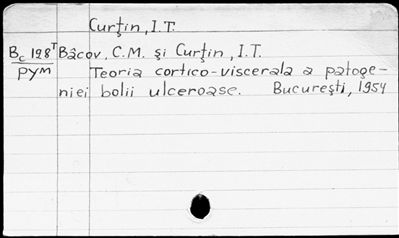 Curţin, I.T.
Bc 128T Băcov, C.M. şi Curţin, I.T.
рум Teoria cortico-viscerala a patoge-
niei bolii ulceroase. Bucureşti, 1954